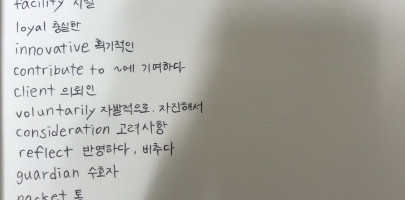 facility 시설
loyal 충실한
innovative 획기적인
contribute to ~에 기여하다
client 의뢰인
voluntarily 자발적으로. 자진해서
consideration 고려사항
reflect 반영하다, 비추다
guardian 수호자
packet 통